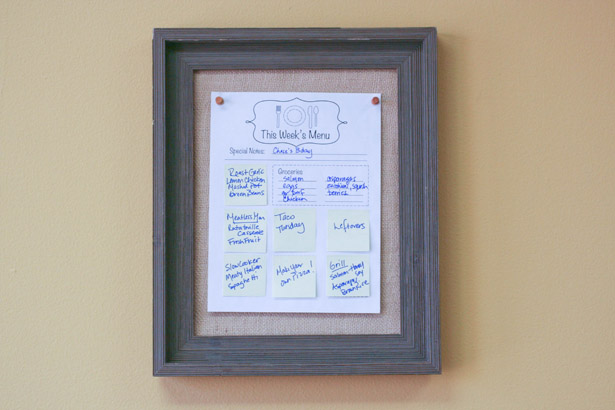 This Week's Menu
Special Notes: Chase's Bday
Roast Garlic
Lemon Chicken
Mashd Pot
Green Beans
Groceries
salmon
eggs
Chicken
asparagus
zucchini, squash
berries
Meatless Mon
Ratatouille
Casserole
Fresh Fruit
Taco
Tuesday
Leftovers
Slow Cooker
Meaty Italian
Spaghetti
Make Your
Own Pizza
Grill
Salmon Honey
Soy
Asparagus
Brown Rice